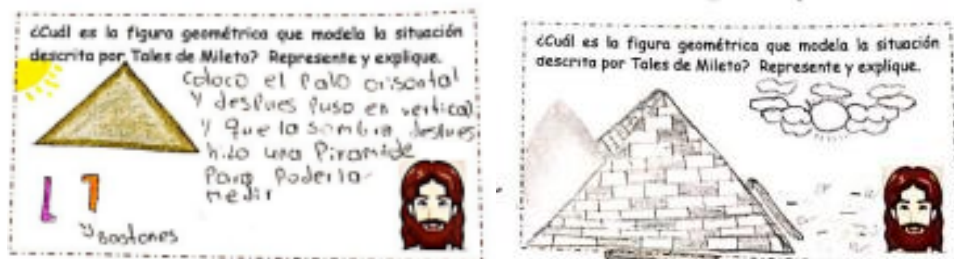 ¿Cuál es la figura geométrica que modela la situación
descrita por Tales de Mileto? Represente y explique.
coloco el Palo orisontal
y despues Puso en vertical
y que la sombra despues
hizo una Piramide
Para Poderla
medir
y Bastones
¿Cuál es la figura geométrica que modela la situación
descrita por Tales de Mileto? Represente y explique.